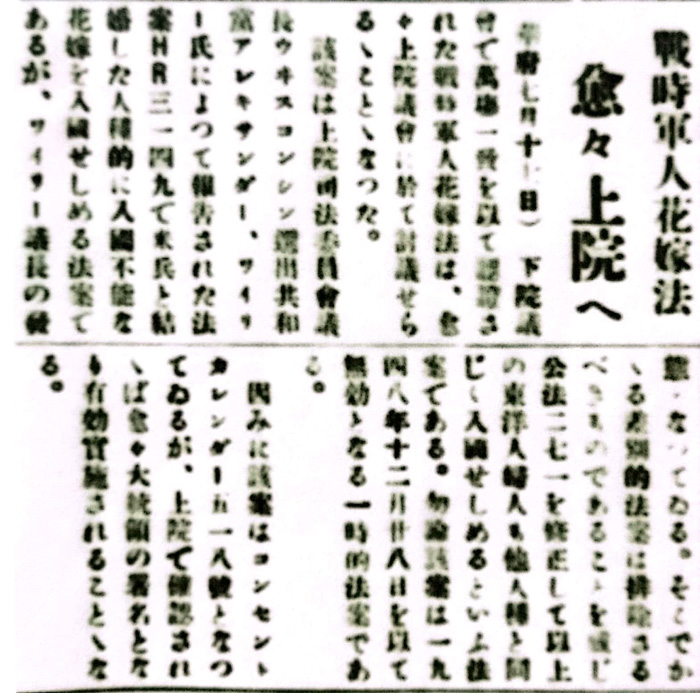 戰時軍人花嫁法
愈々上院へ
華府七月十一日) 下院議
會て萬場一致を以て認證さ
れた戰時軍人花嫁法は、愈
々上院議會に於て討議せら
るゝことゝなつた。
該案は上院司法委員會議
長ウヰスコンシン選出共和
黨アレキサンダー、ワイリ
ー氏によつて報告された法
案HR三一四九て米兵と結
婚した人種的に入國不能な
花嫁を入國せしめる法案て
あるが、ワイリー議長の
態となつてゐる。そこでか
ゝる差別的法案は排除さる
べきものであることを感じ
公法二七一を修正して以上
の東洋人婦人も他人種と同
じく入國せしめるといふ法
案である。勿論該案は一九
四八年十二月廿八日を以て
無効となる一時的法案であ
る。
因みに該案はコンセント
カレンダー五一八號となつ
てゐるが、上院て確認され
ゝば愈々大統領の署名とな
り有効實施されることゝな
る。